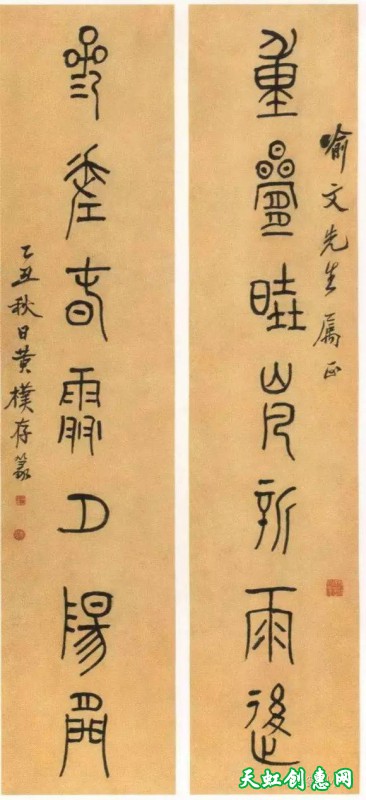 喻文先生屬正
重疊新雨後
參差夕陽
乙丑秋日黃樸存篆
天虹创惠网